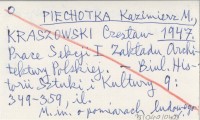 PIECHOTKA Kazimierz M.,
KRASZOWSKI Czesław 1947.
Prace Sekcji I Zakładu Archi-
tektury Polskiej. – Biul. His-
torii Sztuki i Kultury 9:
349-359, il.
M. in. o pomiarach ludowego